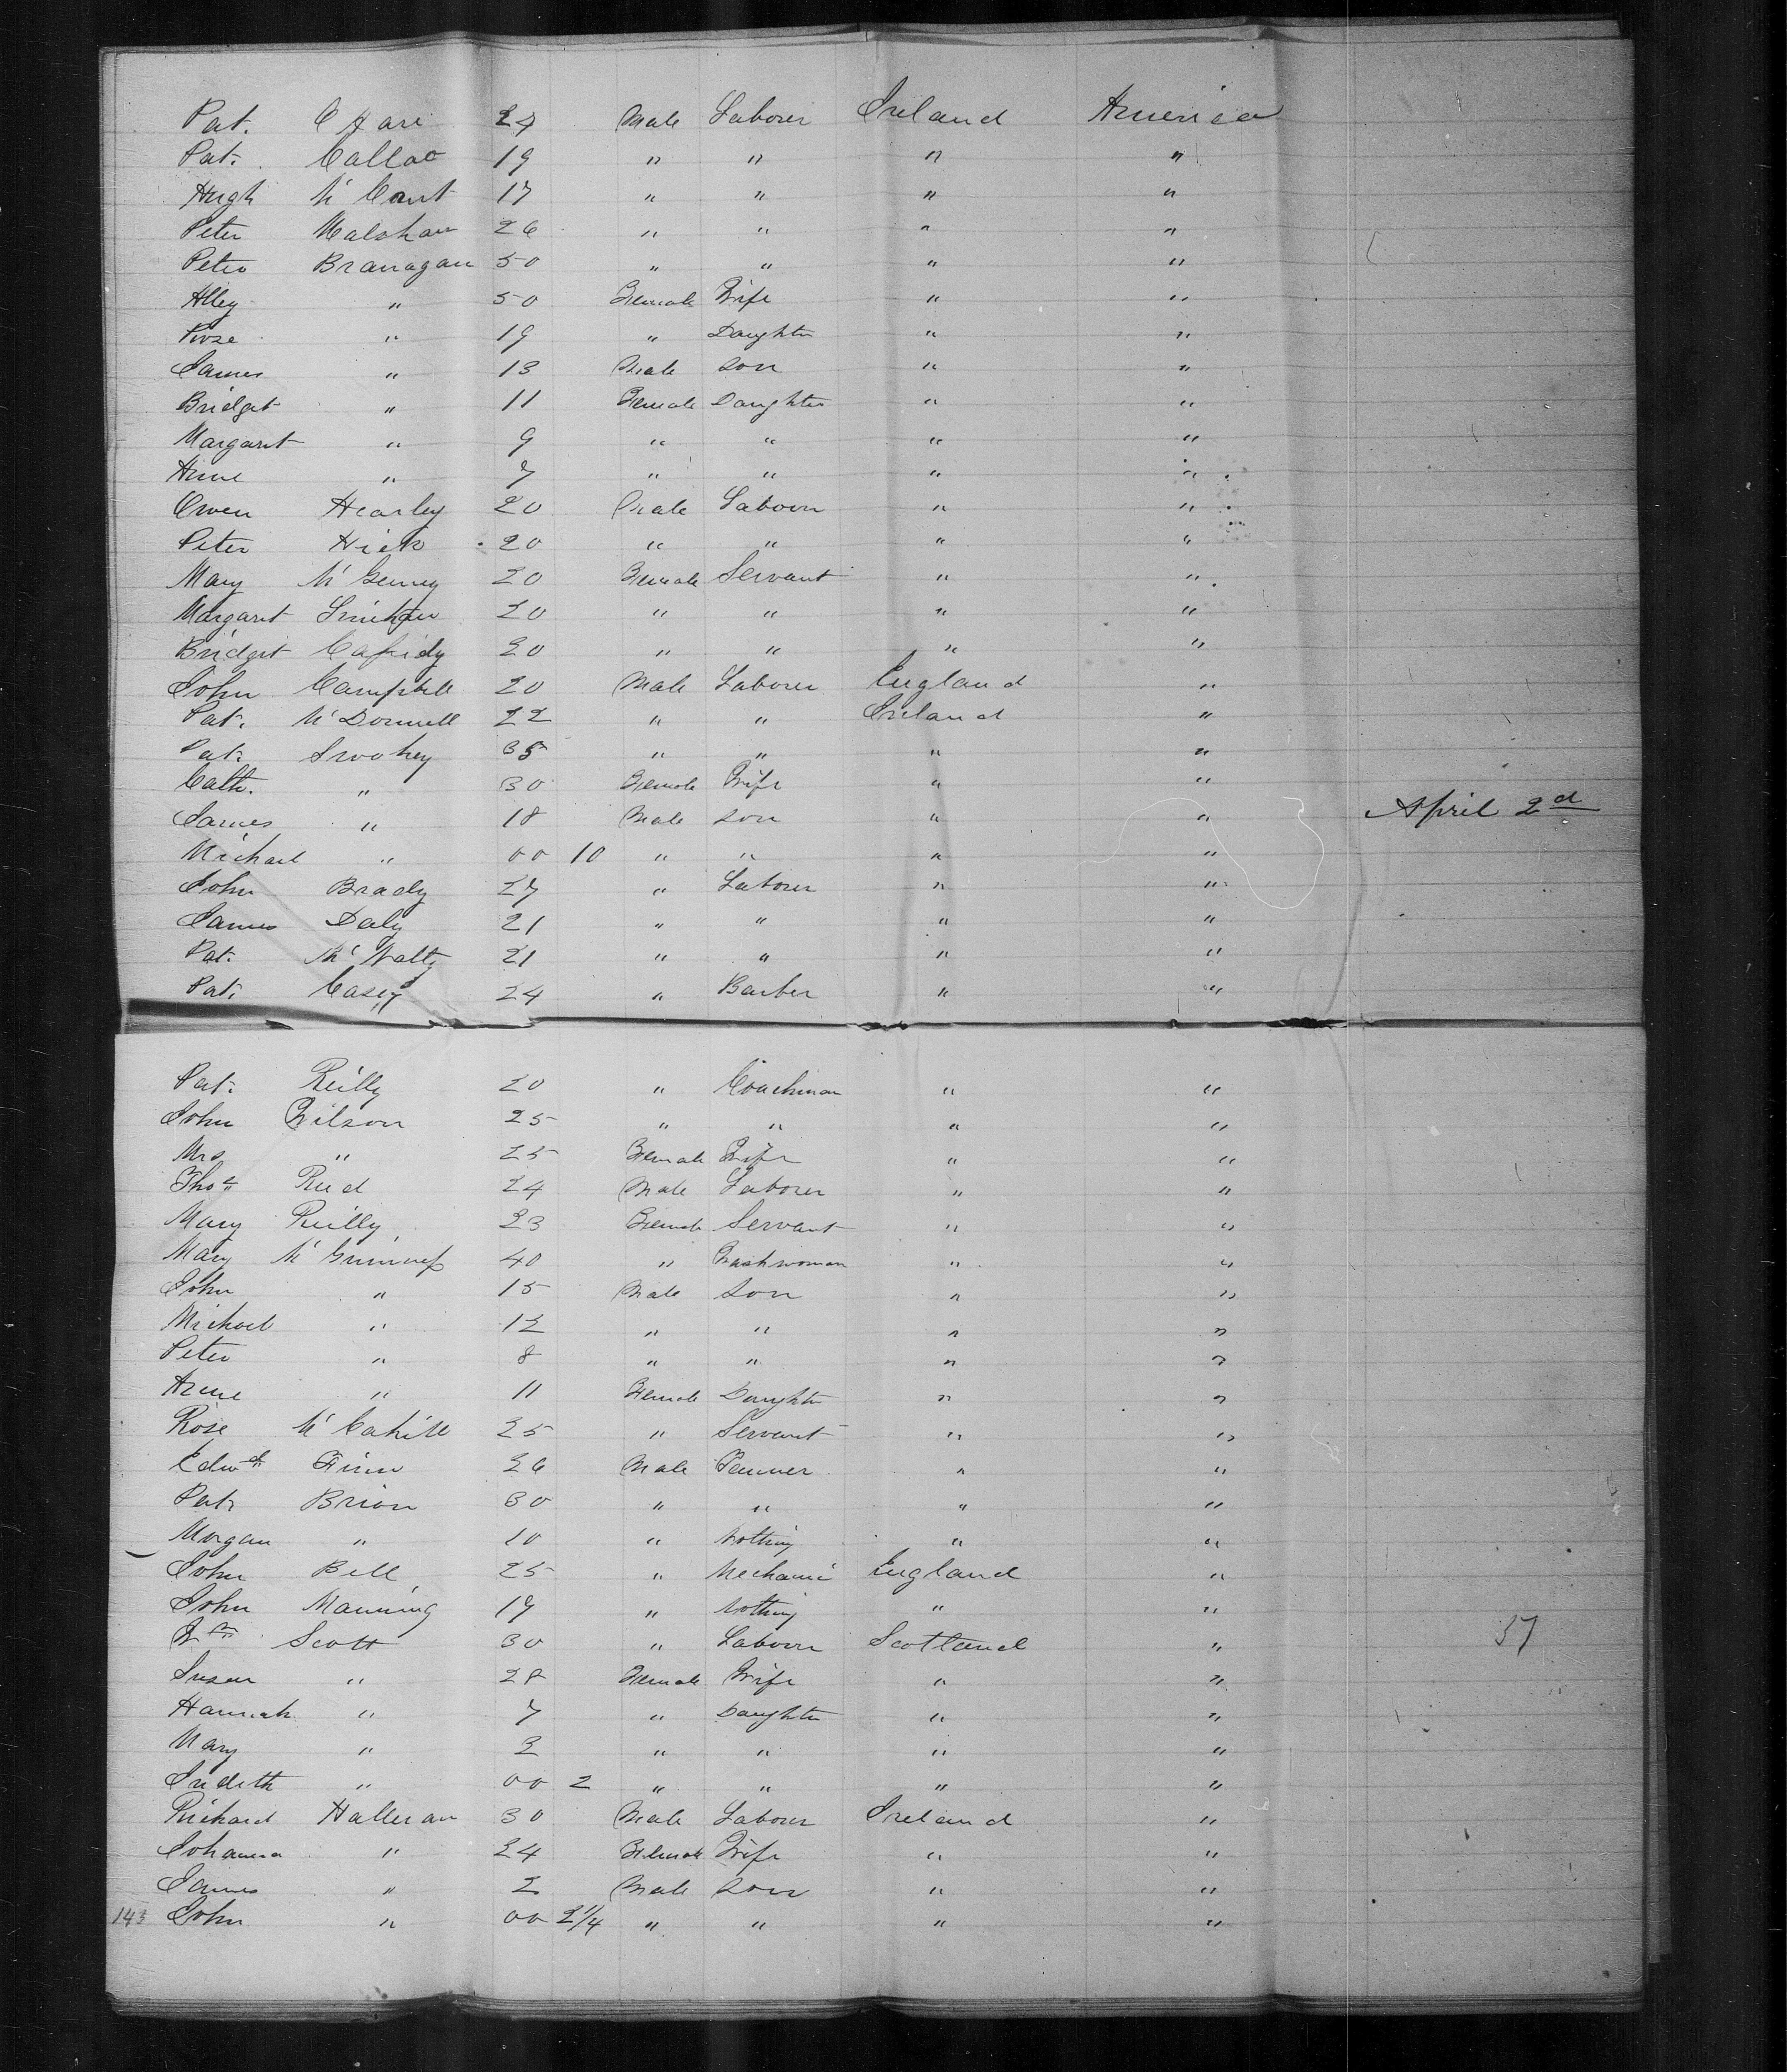 Pat. O Hare 24 Male Laborer Ireland America
Pat. Callao 19 " " " "
Hugh Mc Cant 17 " " " "
Peter 26 " " " "
Peter Branagan 50 " " " "
Alley " 50 Female Wife " "
Rose " 19 " Daughter " "
James " 13 Male Son " "
Bridget " 11 Female Daughter " "
Margaret " 9 " " " "
Anne " 7 " " " "
Owen Hearley 20 Male Laborer " "
Peter 20 " " " "
Mary 20 Female Servant " "
Margaret 20 " " " "
Bridget Cassidy 20 " " " "
John Campbell 20 Male Laborer England "
Pat. Mc Donnell 22 " " Ireland "
Pat. 35 " " " "
Cath. " 30 Female Wife " "
James " 18 Male Son " " April 2d
Michael " 00 10 " " " "
John Brady 27 " Laborer " "
James Daly 21 " " " "
Pat. Mc Nalty 21 " " " "
Pat. Casey 24 " Barber " "
Pat. Reilly 20 " Coachman " "
John Wilson 25 " " " "
Mrs " 25 Female Wife " "
Thos Reed 24 Male Laborer " "
Mary Reilly 23 Female Servant " "
Mary Mc Guinness 40 " Washwoman " "
John " 15 Male Son " "
Michael " 12 " " " "
Peter " 8 " " " "
Anne " 11 Female Daughter " "
Rose Mc Cahill 25 " Servant " "
Edwd Finn 26 Male " "
Pat. Brion 30 " " " "
Morgan " 10 " Nothing " "
John Bell 25 " Mechanic England "
John Manning 19 " Nothing " "
Wm Scott 30 " Laborer Scotland " 37
Susan " 28 Female Wife " "
Hannah " 7 " Daughter " "
Mary " 3 " " " "
Judith " 00 2 " " " "
Richard Halleran 30 Male Laborer Ireland "
Johanna " 24 Female Wife " "
James " 2 Male Son " "
143 John " 00 2 1/4 " " " "